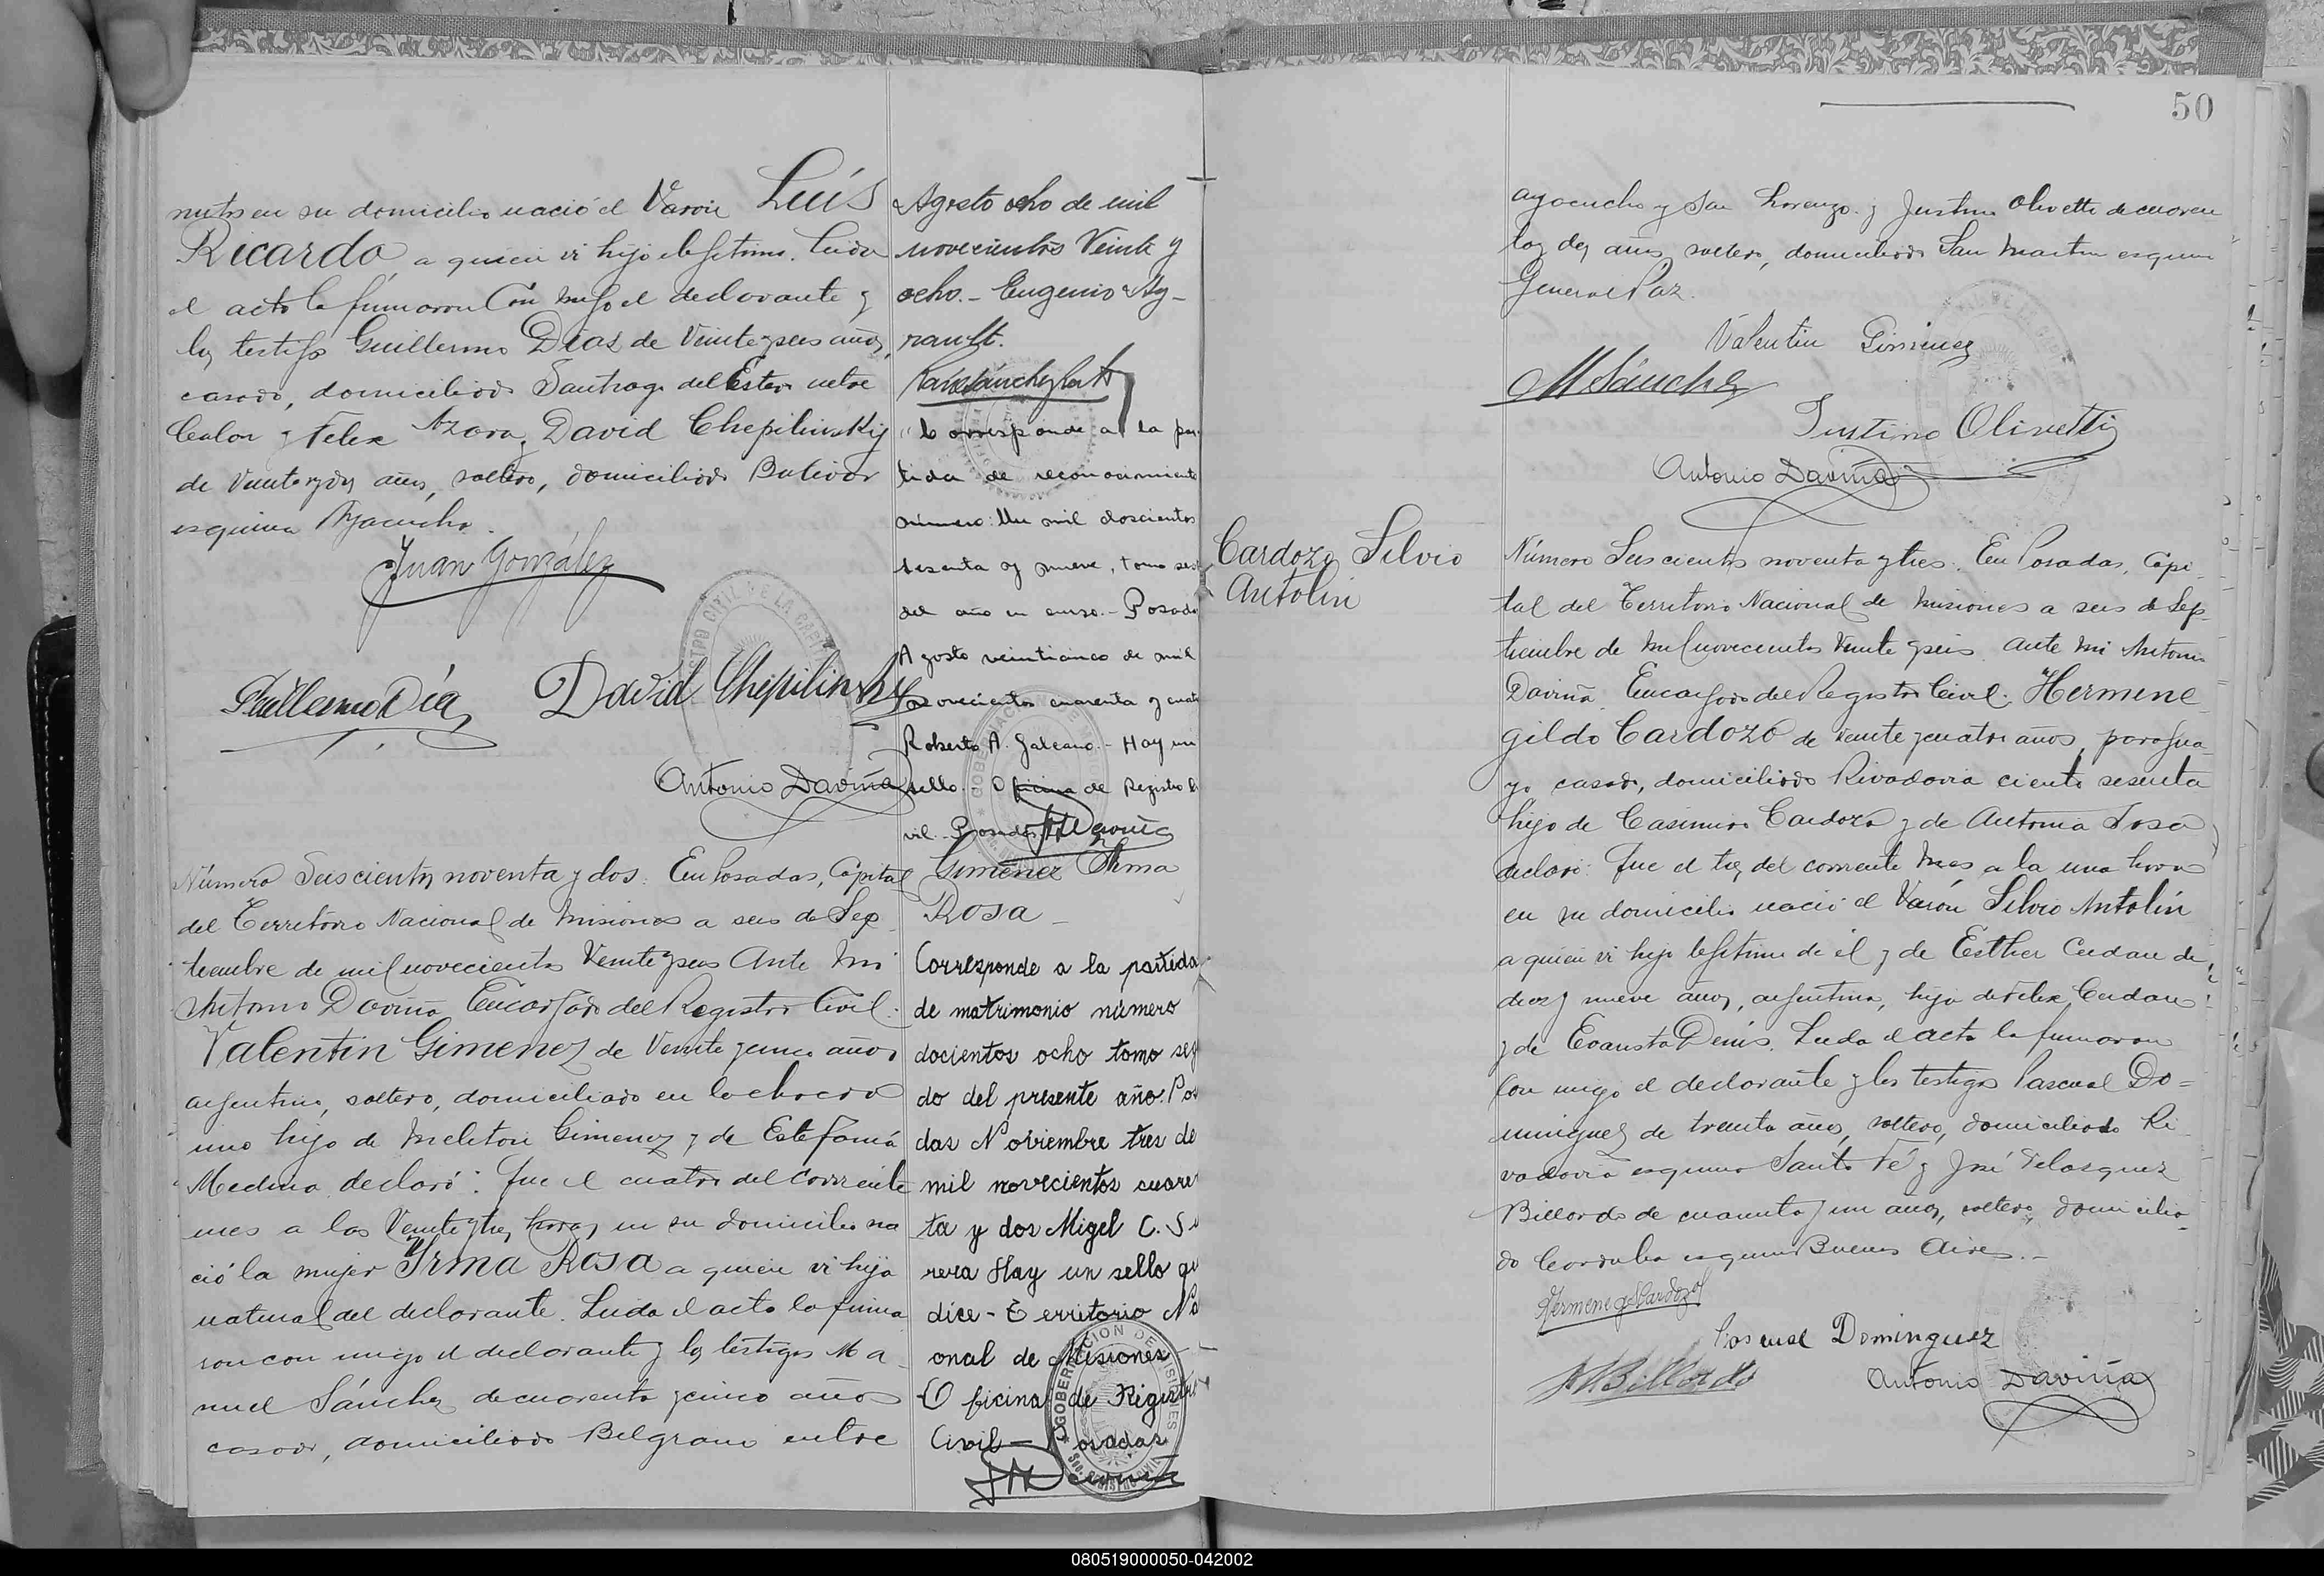 nutos en su domicilio nació el Varón Luís
Ricardo, a quien vi hijo lefitimo. Leida
el acto la firmaron Con migo el declarante y
los testigos Guillermo Díaz de Veinte y seis años,
casado, domiciliado Santiago del Estero entre
Colon y Felix Azara, David Chepilinsky
de Veinte y dos años, soltero, domiciliado Bolivar
esquina Ayacucho.
Juan González
Guillermo Díaz
David Chepilinsky
Antonio Daviña
Agosto ocho de mil
novecientos Veinte y
ocho. - Eugenio
"Corresponde a la par
tida de reconocimiento
número: Un mil doscientos
sesenta y nueve, tomo
del año en curso. - Posada
Agosto veinticinco de mil
novecientos cuarenta y cuat
Roberto A. Galeano. - Hay un
sello. Oficina de Registro Ci
vil. Posadas
Número Seiscientos noventa y dos. En Posadas, Capital
del Territorio Nacional de Misiones a seis de Sep
tiembre de mil novecientos Veinte y seis Ante Mi
Antonio Daviña Encargado del Registro Civil:
Valentin Gimenez de Veinte y cinco años
argentino, soltero, domiciliado en la chacra
uno hijo de Meliton Gimenez y de Estefanía
Medina declaró: Que el cuatro del corriente
mes a las Veinte y tres horas en su domicilio na
ció la mujer Yrma Rosa a quien vi hija
natural del declarante. Leida el acto la firma
ron con migo el declarante y los testigos Ma
nuel Sánchez de cuarenta y cinco años
casado, domiciliado Belgrano entre
Gimenez Yrma
Rosa -
Corresponde a la partida
de matrimonio número
docientos ocho tomo seg
do del presente año. Pos
das Noviembre tres de
mil novecientos cuare
ta y dos Migel C. Su
rera Hay un sello qu
dice - Territorio Na
onal de Misiones -
Oficina de Rigistro
Civil - Posadas
GOBERNACION DE MISIONES
50
Ayacucho y San Lorenzo. y Justino Olivetti de cuaren
ta y dos años, soltero, domiciliado San Martin esquina
General Paz.
Valentin Gimenez
M Sánchez
Justino Olivetti
Antonio Daviña
Cardozo Silvio
Antolin
Número Seiscientos noventa y tres. En Posadas, Capi
tal del Territorio Nacional de Misiones a seis de Sep
tiembre de mil novecientos Veinte y seis ante mi Antonio
Daviña. Encargado del Registro Civil. Hermene
gildo Cardozo de veinte y cuatro años, paragua
yo casado, domiciliado Rivadavia ciento sesenta
hijo de Casimiro Cardozo y de Antonia Sosa
declaró: Que el tres del corriente Mes a la una hora
en su domicilio nació el Varón Silvio Antolín
a quien vi hijo lefitimo de él y de Esther Cendan de
diez y nueve años, argentina, hija de Felix Cendan
y de Evarista Denis. Leida el acta la firmaron
Con migo el declarante y los testigos Pascual Do=
minguez de treinta años, soltero, domiciliado Ri
vadavia esquina Santa Fé y José Velasquez
Billordo de cuarenta y un años, soltero, domicilia
do Cordoba esquina Buenos Aires. -
Hermeneg Cardozo
Pascual Dominguez
Billordo
Antonio Daviña
080519000050-042002